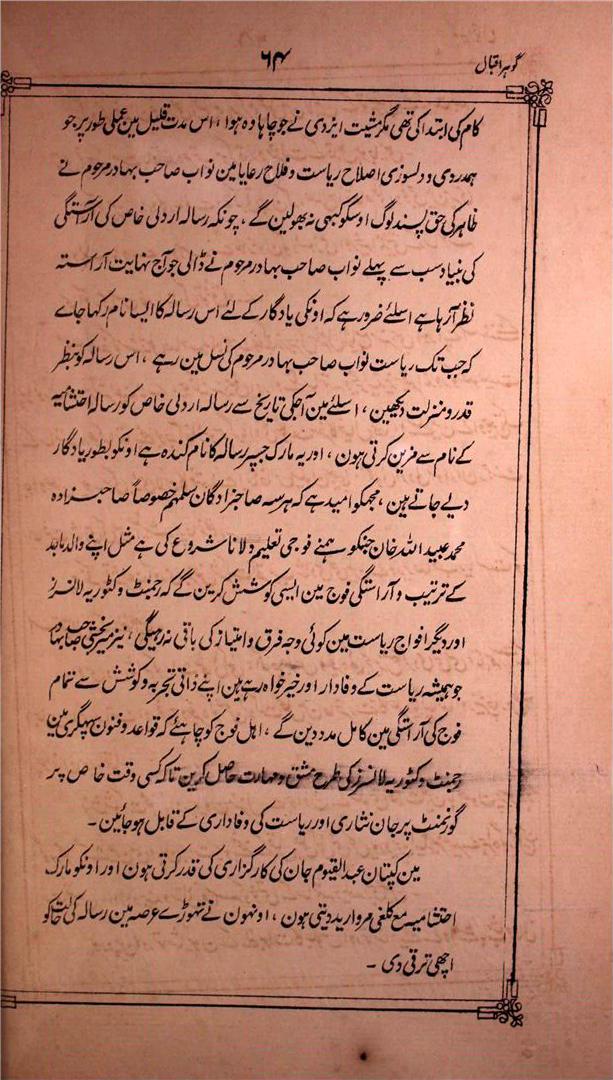 گوہر اقبال
۶۴
کام کی ابتدا کی تھی مگر مشیت ایزدی نے جو چاہا وہ ہوا ، اس مدت قلیل مین عملی طور پر جو
ہمدردی و دلسوزی اصلاح ریاست و فلاح رعایا مین نواب صاحب بہادر مرحوم نے
ظاہر کی حق پسند لوگ اوسکو کبھی نہ بھولین گے ، چونکہ رسالہ اردلی خاص کی آراستگی
کی بنیاد سب سے پہلے نواب صاحب بہادر مرحوم نے ڈالی جو آج نہایت آراستہ
نظر آرہا ہے اسلئے ضرور ہے کہ اونکی یادگار کے لئے اس رسالہ کا ایسا نام رکھا جاے
کہ جب تک ریاست نواب صاحب بہادر مرحوم کی نسل مین رہے ، اس رسالہ کو بنظر
قدر و منزلت دیکھین ، اسلئے مین آجکی تاریخ سے رسالہ اردلی خاص کو رسالہ احتشامیہ
کے نام سے مزین کرتی ہون ، اور یہ مارک جسپر رسالہ کا نام کندہ ہے اونکو بطور یادگار
دیے جاتے ہین ، مجھکو امید ہے کہ ہر سہ صاحبزادگان سلمہم خصوصاً صاحبزادہ
محمد عبید اللہ خان جنکو ہمنے فوجی تعلیم دلانا شروع کی ہے مثل اپنے والد ماجد
کے ترتیب و آراستگی فوج مین ایسی کوشش کرین گے کہ رجمنٹ وکٹوریہ لانسرز
اور دیگر افواج ریاست مین کوئی وجہ فرق و امتیاز کی باقی نہ رہیگی ، نیز میر بخشی صاحب بہادر
جو ہمیشہ ریاست کے وفادار اور خیر خواہ رہے ہین اپنے ذاتی تجربہ و کوشش سے تمام
فوج کی آراستگی مین کامل مدد دین گے ، اہل فوج کو چاہئے کہ قواعد و فنون سپہگری مین
رجمنٹ وکٹوریہ لانسرز کی طرح مشق و مہارت حاصل کرین تاکہ کسی وقت خاص پر
گورنمنٹ پر جان نثاری اور ریاست کی وفاداری کے قابل ہو جائین ۔
مین کپتان عبد القیوم جان کی کارگزاری کی قدر کرتی ہون اور اونکو مارک
احتشامیہ مع کلغی مروارید دیتی ہون ، اونہون نے تھوڑے عرصہ مین رسالہ کی حالت کو
اچھی ترقی دی ۔